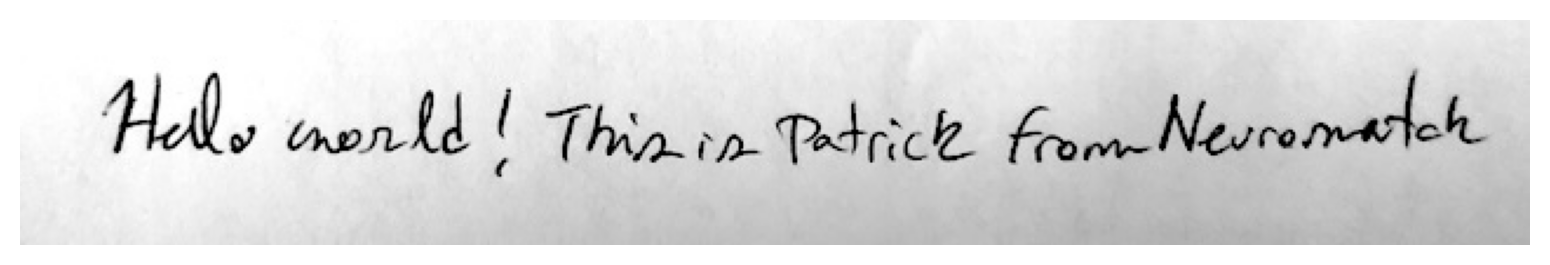 Hello world! This is Patrick from Neuromatch